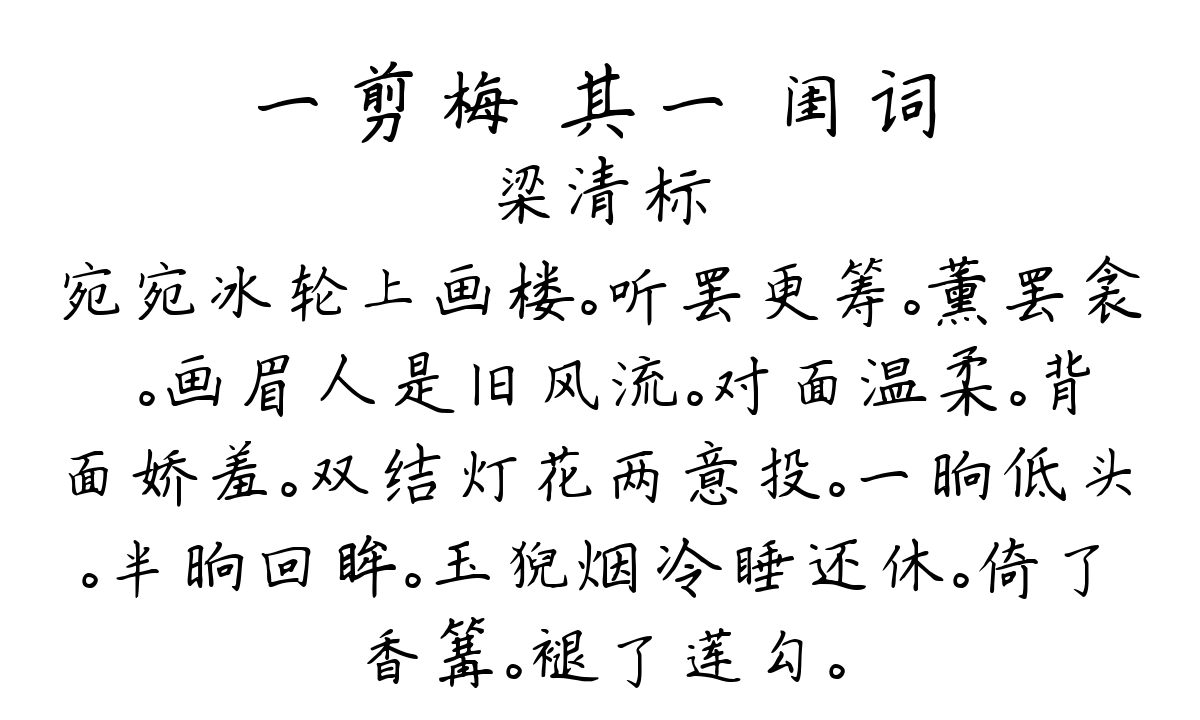 一剪梅 其一 闺词
梁清标
宛宛冰轮上画楼。听罢更筹。薰罢衾
。画眉人是旧风流。对面温柔。背
面娇羞。双结灯花两意投。一晌低头
。半晌回眸。玉猊烟冷睡还休。倚了
香篝。褪了莲勾。